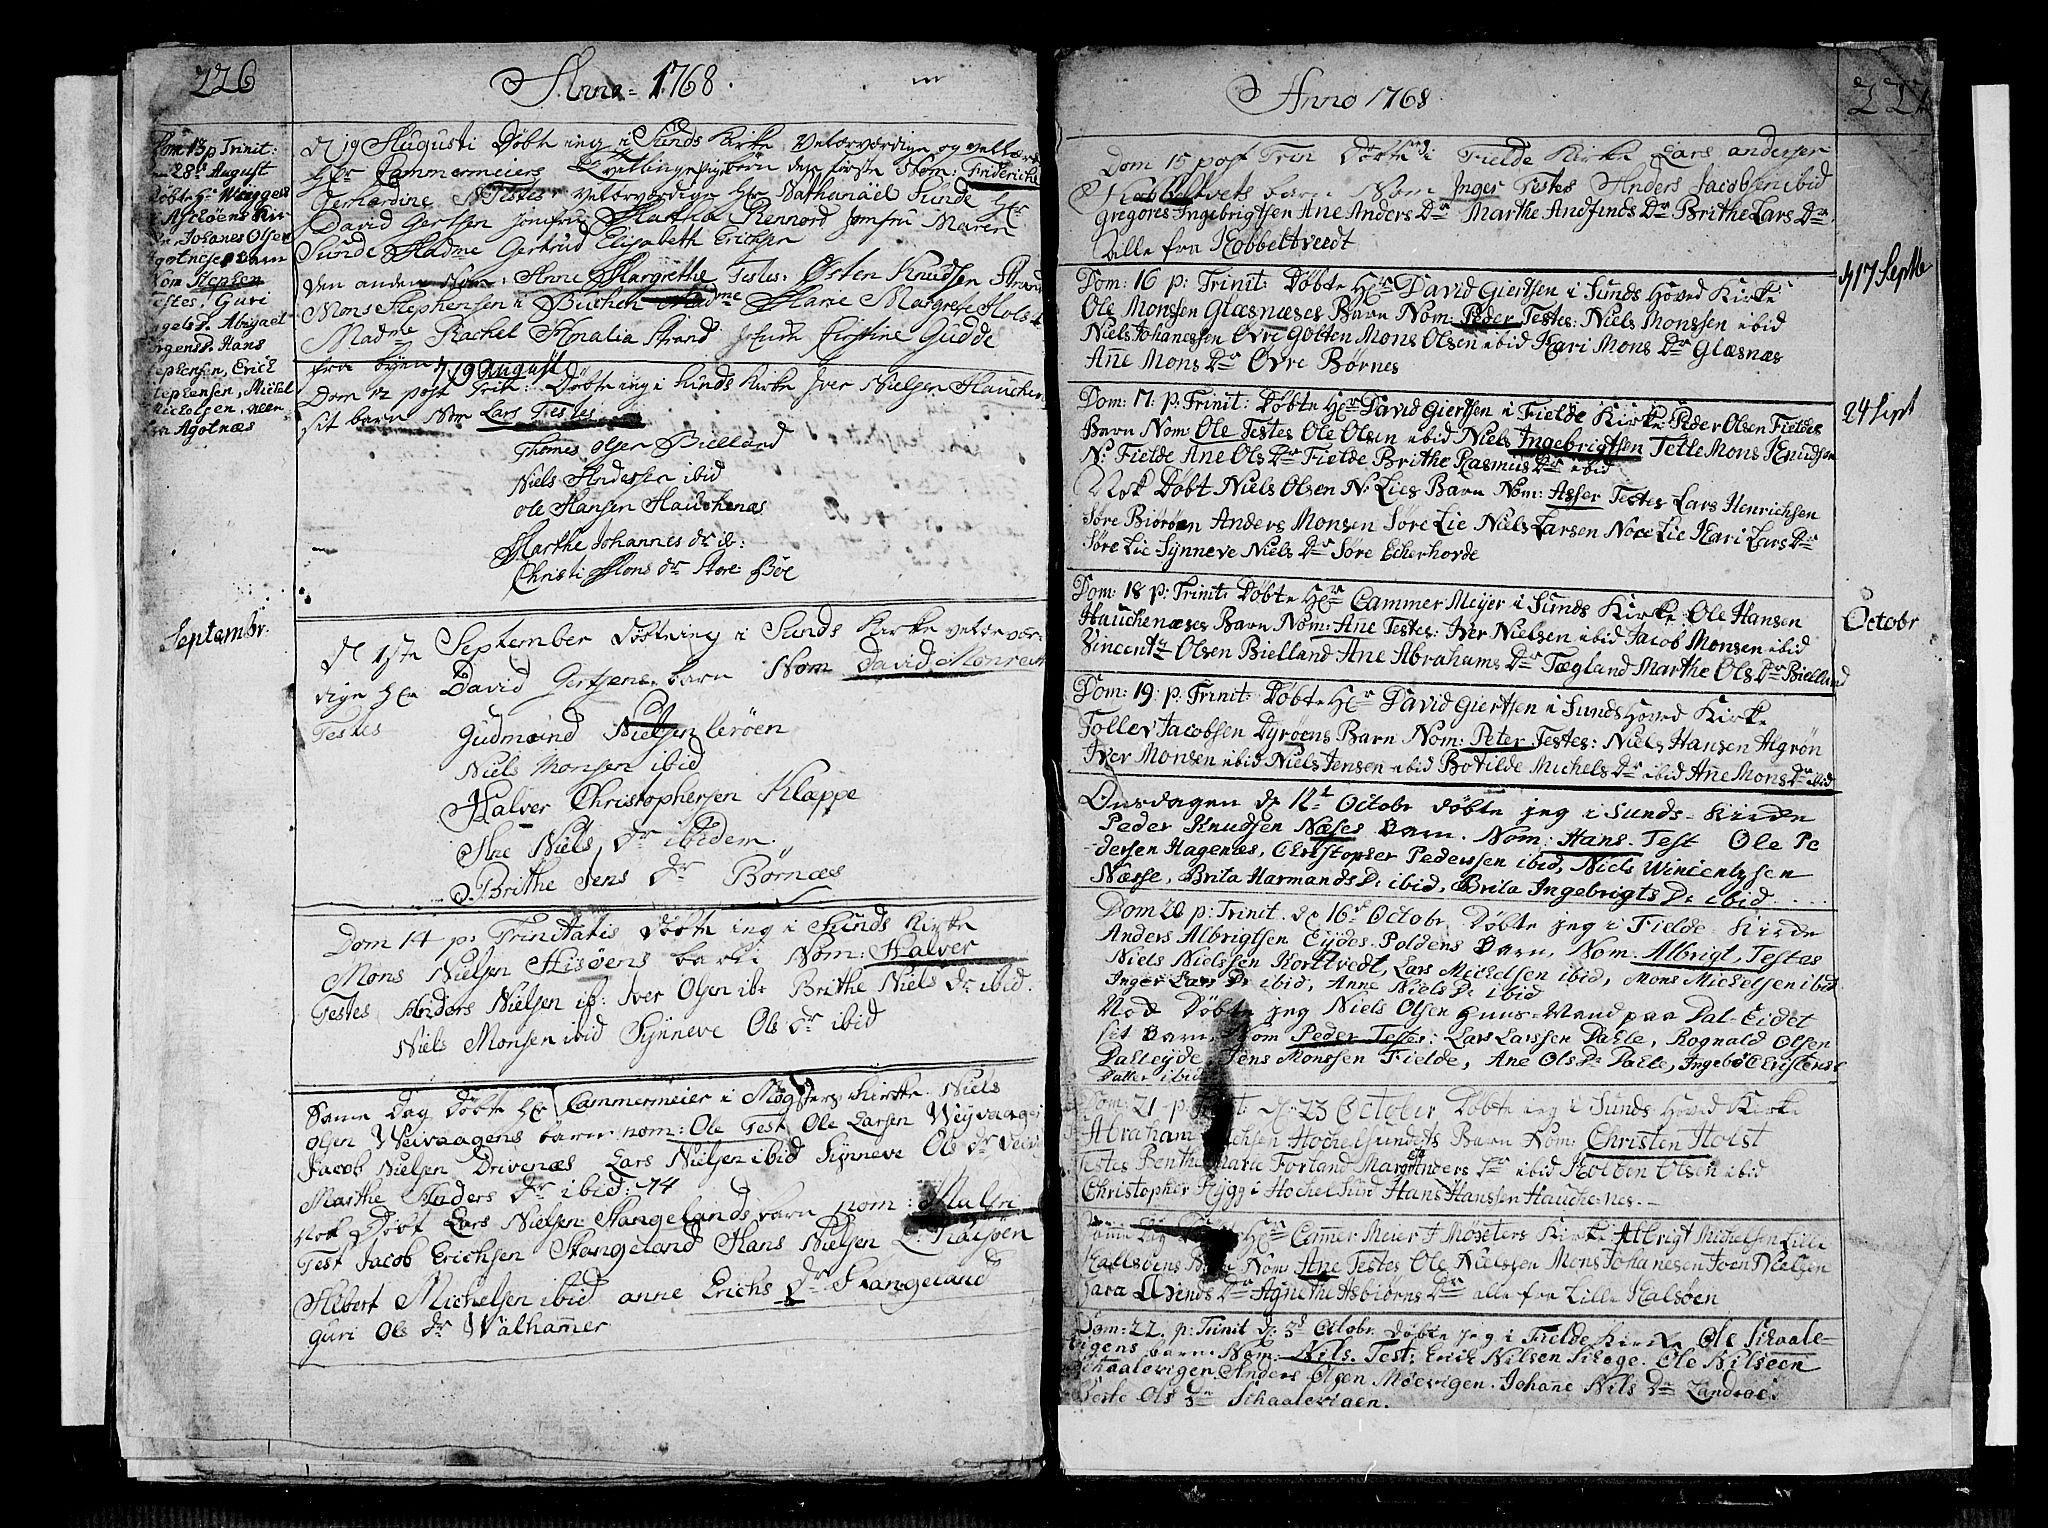 226
Anno 1768.
Dom 13 p Trinit:
28de August
Døbte Hr Weigge
i Agtøens Kir
Johanes Olsen
Agotneses Barn
Nom Stephen
Testes: Guri
Abigael
Hans
Stephensen, Erich
Stephensen, Michel
Nicholsen,
fra Agotnæs
D 19 Augusti Døbte ieg i Sunds Kirke Velærværdige og vellærde
Hr Cammermeiers tvellinge pige børn den første Nom: Friderich
Gerhardine Testes velærværdige Hr Nathanaël Sunde Hr
David Gertsen Jomfru Maria Rennord Jomfru Maren
Sunde Madme Gertrud Elisabeth Erichsen
den anden Nom: Anne Margrethe Testes: Østen Knudsen Strand
Mons Stephensen i Buchen Madme Marie Margrete Holst
Madme Rachel Amalia Strand Christine Gudde
fra byen
d 19 August
Dom 12 post Trin: Døbte ieg i Sunds Kirke Iver Nielsen Hauchen
sit barn Nom Lars Testes
Thomes Olsen Bielland
Niels Andersen ibid
Ole Hansen Hauchenæs
Marthe Johannes dr ib:
Christi Mons dr Store Bøe
Septembr.
D 1ste September Døbte ieg i Sunds Kirke velærvær-
dige Hr David Gertsens barn Nom David Monrad
Testes Gudmund Nielsen Lerøen
Niels Monsen ibid
Halver Christophersen Klæppe
Ane Niels dr ibidem
Brithe Jens dr Børnæs
Dom 14 p: Trinitatis døbte ieg i Sunds Kirke
Mons Nielsen Hisøens barn Nom: Halver
Testes Anders Nielsen ib: Iver Olsen ibr Brithe Niels dr ibid.
Niels Monsen ibid Synneve Ols dr ibid
Same Dag Døbte Hr Cammermeier i Møgsters Kirke Niels
Olsen Weivaagens barn nom: Ole Test Ole Larsen Weyvaagen
Jacob Nielsen Drivenæs Lars Nielsen ibid Synneve Ols dr
Marthe Anders dr ibid: 74
Nok Døbt Lars Nielsen Stangelands barn nom:
Test Jacob Erichsen Stangeland Hans Nielsen
Albert Michelsen ibid anne Erichs dr Stangeland
guri Ols dr Walhamer
Anno 1768.
227
Dom 15 post Trin Døbte ieg i Fielde Kirke Lars andersen
Kobbeltvets barn Nom Inger Testes Anders Jacobsen ibid
gregores Ingebrigtsen Ane Anders Dr Marthe Andfinds Dr Brithe Lars Dr
alle fra Kobbeltveedt
Dom: 16 p: Trinit: Døbte Hr David Giertsen i Sunds Hoved Kirke
d 17 Septbr
Ole Monsen Glæsnæses Barn Nom: Peder Testes: Niels Monssen ibid
Niels Johanessen Øvre Golten Mons Olsen ibid Kari Mons Dr Glæsnæs
Ane Mons Dr Øvre Børnes
Dom: 17. p: Trinit: Døbte Hr David Giertsen i Fielde Kirke Peder Olsen Fieldes
24 Sept
Barn Nom: Ole Testes Ole Olsen ibid Niels Ingebrigtsen Telle Mons Knudsen
N: Fielde Ane Ols Dr Fielde Brithe Rasmus Dr ibid
Nok Døbt Niels Olsen N: Lies Barn Nom: Asser Testes Lars Henrichsen
Søre Biørøen Anders Monsen Søre Lie Niels Larsen Nore Lie Kari Lars Dr
Søre Lie Synneve Niels Dr Søre Eckerhovde
Dom: 18 p: Trinit: Døbte Hr Cammer Meyer i Sunds Kirke Ole Hansen
Octobr
Hauchenæses Barn Nom: Ane Testes: Iver Nielsen ibid Jacob Monsen ibid
Vincentz Olsen Bielland Ane Abrahams Dr Tægland Marthe Ols Dr Bielland
Dom: 19. p: Trinit: Døbte Hr David Giertsen i Sunds Hoved Kirke
Tollev Jacobsen Dyrøens Barn Nom: Peter Testes: Niels Hansen Algrøn
Iver Monsen ibid Niels Jensen ibid Botilde Michels Dr ibid Ane Mons Dr ibid
Onsdagen d 12t Octobr døbte jeg i Sunds Kirke
Peder Knudsen Næses Barn. Nom: Hans. Test Ole Pe
dersen Hagenæs, Christopher Pederssen ibid, Niels Wincentzsen
Næsse, Brita Harmands D: ibid, Brita Ingebrigts D: ibid
Dom 20 p: Trinit. d 16t Octobr Døbte jeg i Fielde Kirke
Anders Albrigtsen Eydes-Poldens Barn, Nom: Albrigt, Testes
Niels Nielssen Korttvedt, Lars Michelsen ibid, Mons Michelsen ibid
Inger Lars D: ibid, Anne Niels D: ibid
Nod Døbte jeg Niels Olsen Huus-Mand paa Dal-Eidet
sit Barn Nom Peder Testes: Lars Larssen Dahle, Rognald Olsen
Dalleyde Jens Monssen Fielde, Ane Ols D: Dalle, Ingebor Christens
Daller ibid
Dom: 21 p: Trinit: d: 23 October Døbte ieg i Sunds Hoved Kirke
Abraham Hochelsundets Barn Nom: Christen Holst
Testes Benthe Marie Forland Margr Anders Dr ibid Kolben Olsen ibid
Christopher Rygg i Hochel Sund Hans Hanssen Hauchenes.
Same Dag Døbte Hr Cammer Meier i Møxters Kirke Albrigt Michelsen Lille
Kalsøens Barn Nom: Ane Testes Ole Nielssen Mons Johanesen Joen Nielsen
Sara Øvinds Dr Agnethe Asbiørns Dr alle fra Lille Kalsøen
Dom: 22. p: Trinit d: Octobr. døbte jeg i Fielde Kirke Ole Schaale-
vigens barn. Nom: Nils. Test: Erich Nilsen Schoge. Ole Nilseen
Schaalevigen. Anders Olsen Møevigen. Johane Nils Dr Landroe.
Ols Dr Schaalevigen.